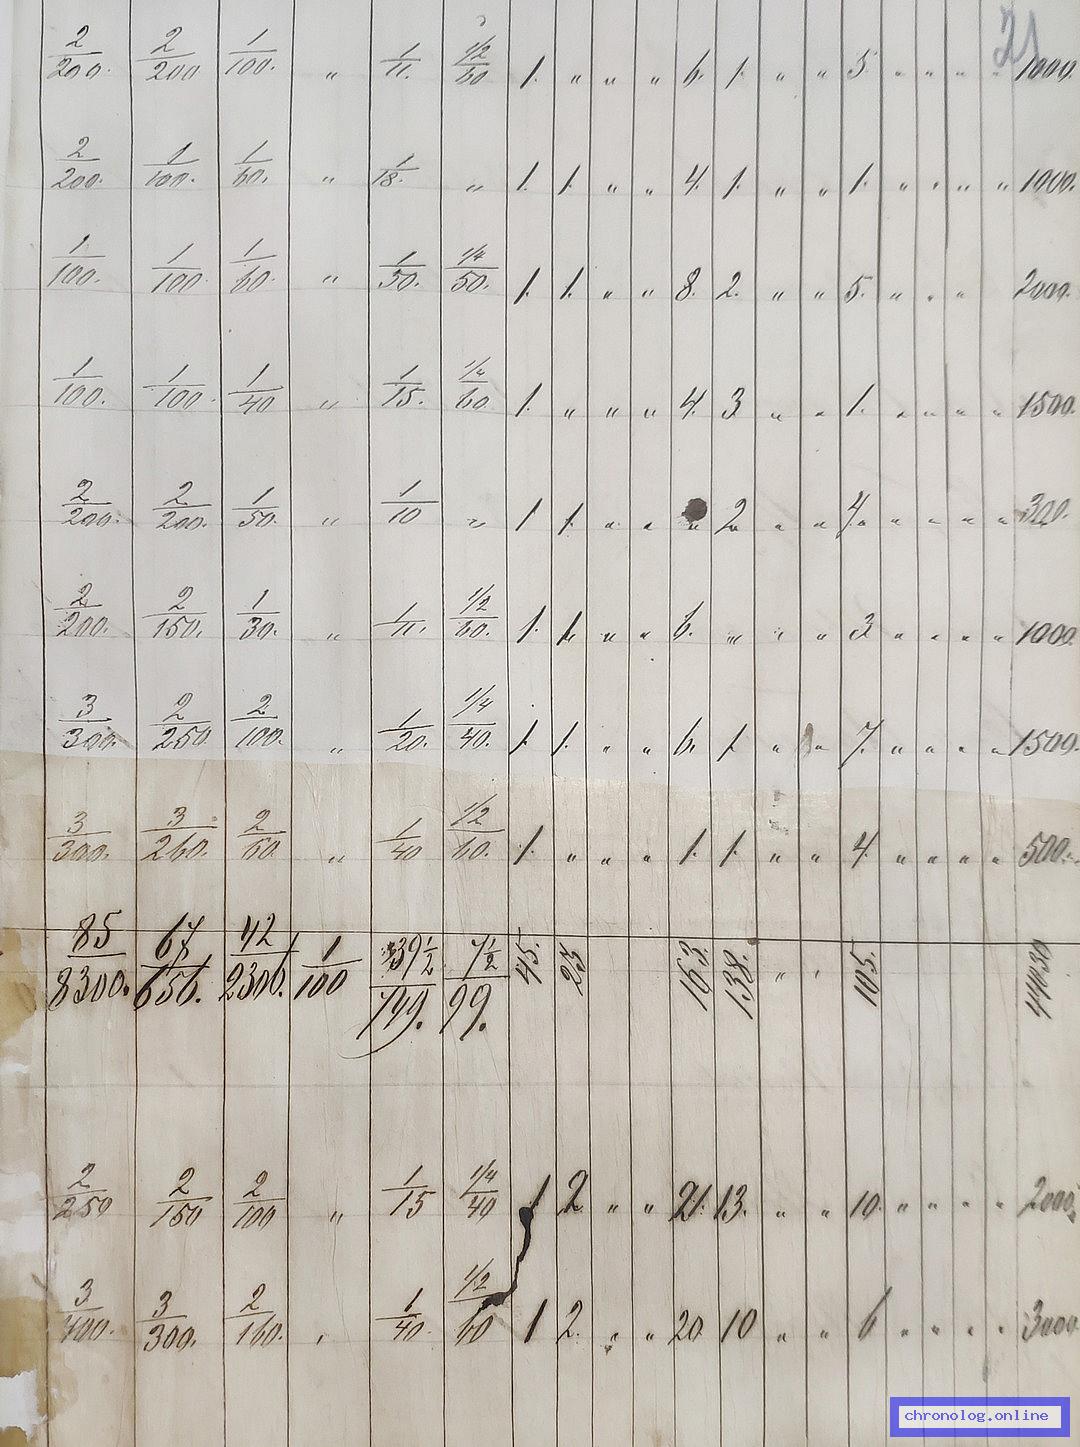 21
2/200. 2/200 1/100. " 1/11. 1/2/60 1. " " " 6. 1. " " 5 " " " " 1000.
2/200. 1/100. 1/60. " 1/18. " 1. 1. " " 4. 1. " " 1. " " " " 1000.
1/100. 1/100 1/60. " 1/50. 1/4/50. 1. 1. " " 8. 2. " " 5. " " " 2000.
1/100. 1/100. 1/40 " 1/15. 1/4/60 1. " " " 4. 3 " " 1. " " " " 1500.
2/200. 2/200. 1/50. " 1/10 " 1 1. " " " 2 " " 4 " " " " 300.
2/200. 2/150. 1/30. " 1/11. 1/2/60. 1. 1. " " 6. " " " 3 " " " " 1000
3/300. 2/250 2/100. " 1/20. 1/4/40. 1. 1. " " 6. 1. " " 7. " " " " 1500.
3/300. 3/260. 2/60 " 1/40 1/2/60. 1. " " " 1. 1. " " 4. " " " " 500.
85/8300. 67/656. 42/2300. 1/100 39 1/2/749. 7 1/2/99. 45. 25 163. 138. " " 105.
2/250 2/150 2/100 " 1/15 1/4/40 1 2 " " 21. 13. " " 10. " " " " 2000
3/400. 3/300. 2/160. " 1/40. 1/2/60 1 2. " " 20. 10 " " 6 " " " " 3000
chronolog.online